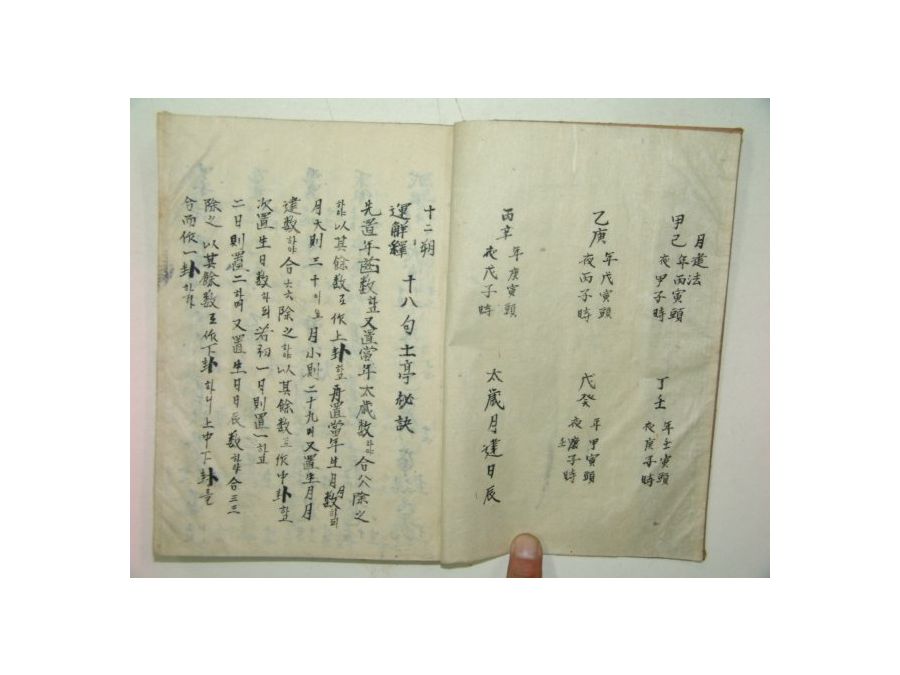 月建法
甲己 年丙寅頭
夜甲子時
丁壬 年壬寅頭
夜庚子時
乙庚 年戊寅頭
夜丙子時
戊癸 年甲寅頭
夜壬子時
丙辛 年庚寅頭
夜戊子時
太歲月建日辰
十二朔
運解釋 十八句土亭秘訣
先置年齒數하고又置當年太歲數하야合八除之
하야以其餘數로作上卦하고再置當年生月數하되
月大則三十이오月小則二十九며又置生月月
建數하야合六六除之하야以其餘數로作中卦하고
次置生日數하되若初一日則置一하고
二日則置二하며又置生日日辰數하야合三三
除之以其餘數로作下卦하니上中下卦를
合而作一卦하라